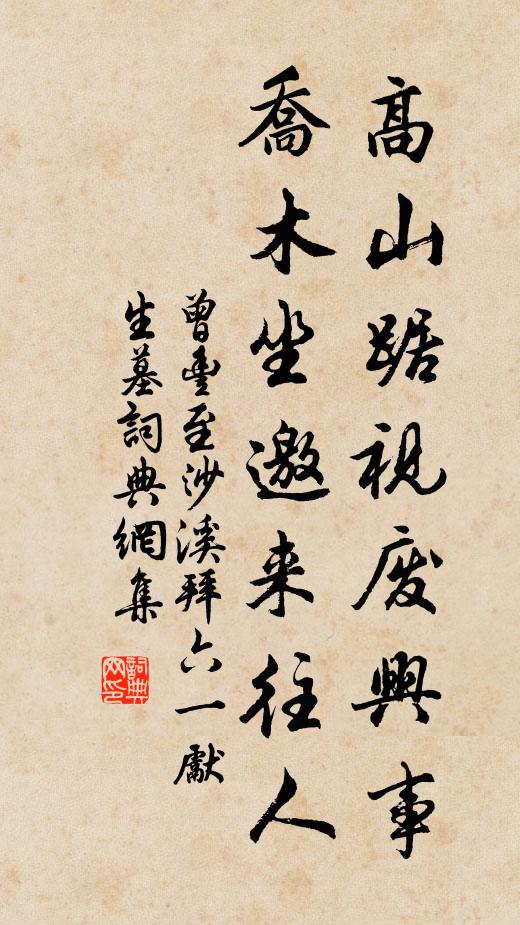 高山踞視廢興事
喬木坐邀来往人
曾豐至沙溪拜六一獻
生墓詞典網集
詞典网印